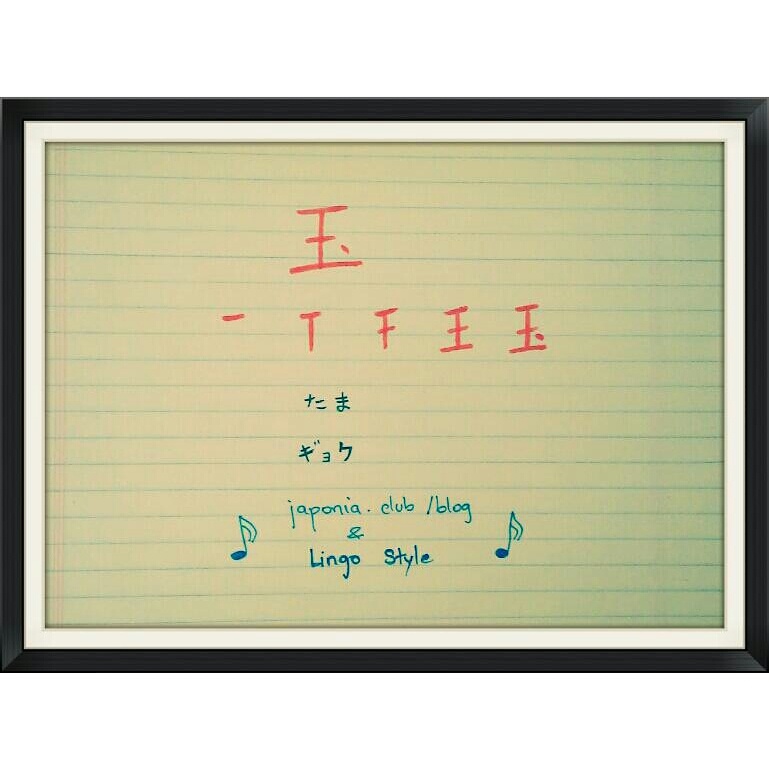 玉
一 T F 王 玉
たま
ギョク
japonia.club/blog
&
Lingo Style